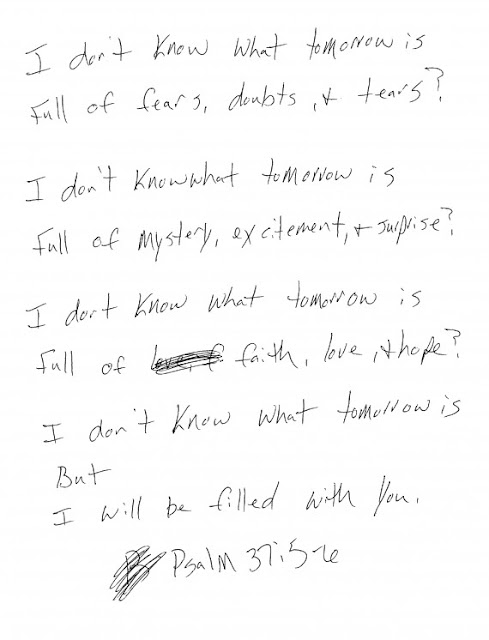 I don't know what tomorrow is
Full of fears, doubts, & tears?
I don't know what tomorrow is
Full of mystery, excitement, & surprise?
I don't know what tomorrow is
Full of faith, love, & hope?
I don't know what tomorrow is
But
I will be filled with You.
Psalm 37:5-6